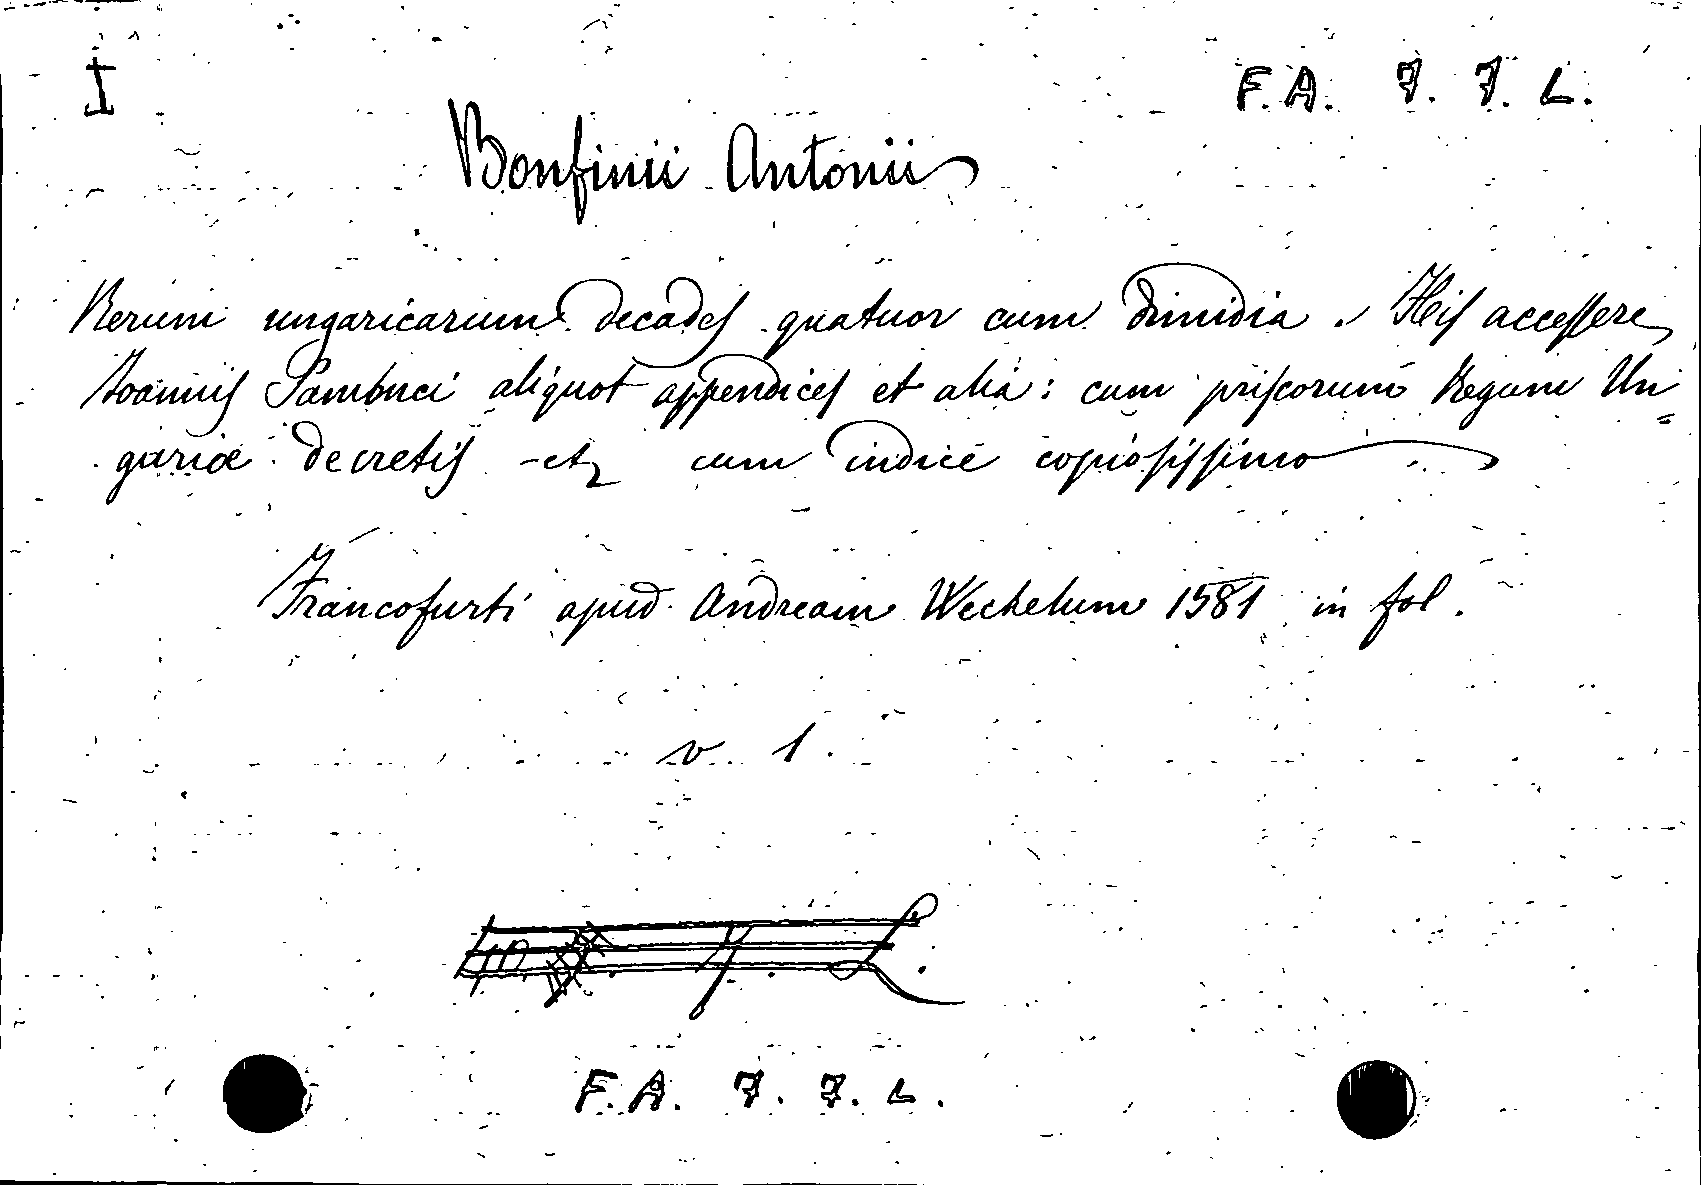 F. A. 7. 7. L.
Bonfinii Antonii
Rerum ungaricarum decades quatuor cum dimidia. His accessere
Joannis Sambuci aliquot appendices et alia: cum priscorum Regum Un=
gariæ decretis et cum indice copiosissimo
Francofurti apud Andream Wechelum 1581 in fol.
v. 1.
F. A. 7. 7. L.